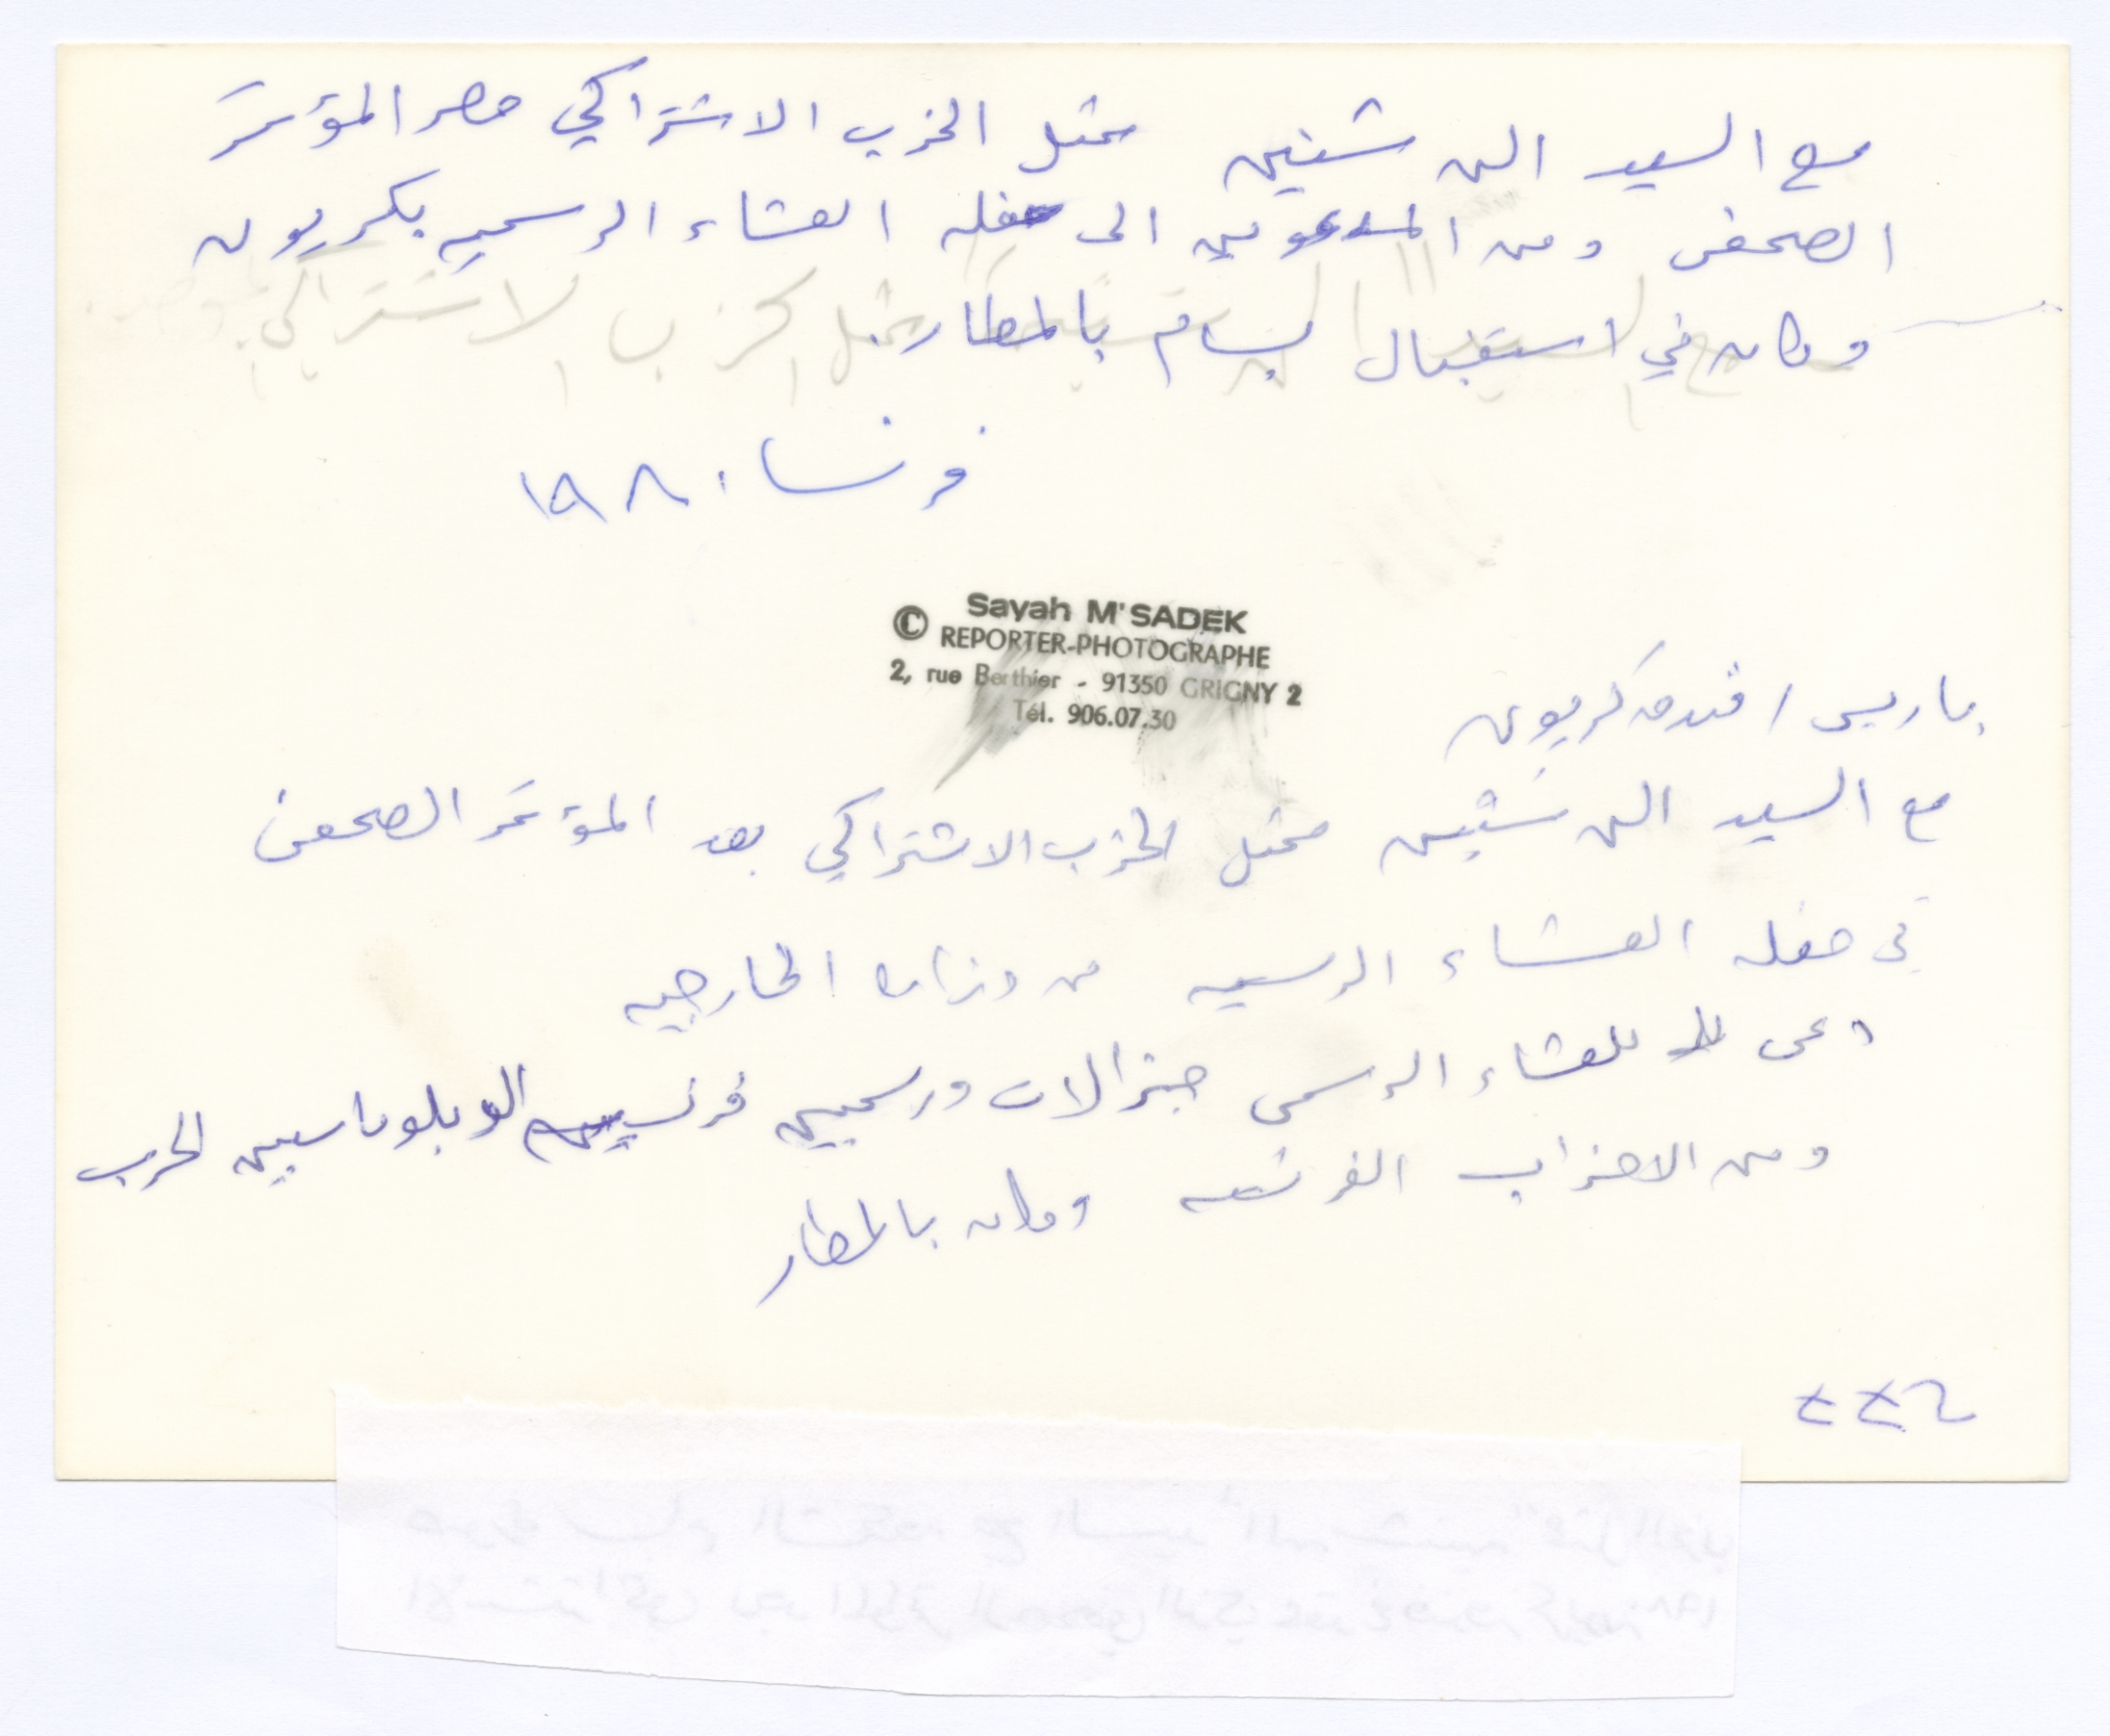 مع السيد الن شنين ممثل الحزب الاشتراكي حضر المؤتمر
الصحفى ومن المدعوين الى حفله العشاء الرسميه بكريون
وكان في استقبال بسام بالمطار.
فرنسا ١٩٨٠
Sayah M'SADEK
© REPORTER-PHOTOGRAPHE
2, rue Berthier - 91350 GRIGNY 2
Tél. 906.07.30
باريس / فندق كريون
مع السيد الن شنين ممثل الحزب الاشتراكي بعد المؤتمر الصحفى
في حفله العشاء الرسميه من وزاره الخارجيه
دعى للعشاء الرسمى جنرالات ورسميين فرنسيين
ومن الاحزاب الفرنسيه وكان بالمطار